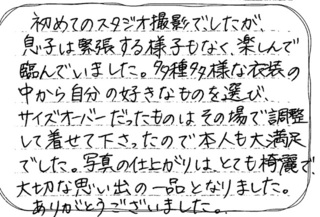 初めてのスタジオ撮影でしたが、
息子は緊張する様子もなく、楽しんで
臨んでいました。多種多様な衣装の
中から自分の好きなものを選び、
サイズオーバーだったものはその場で調整
して着せて下さったので本人も大満足
でした。写真の仕上がりは、とても綺麗で、
大切な思い出の一品となりました。
ありがとうございました。